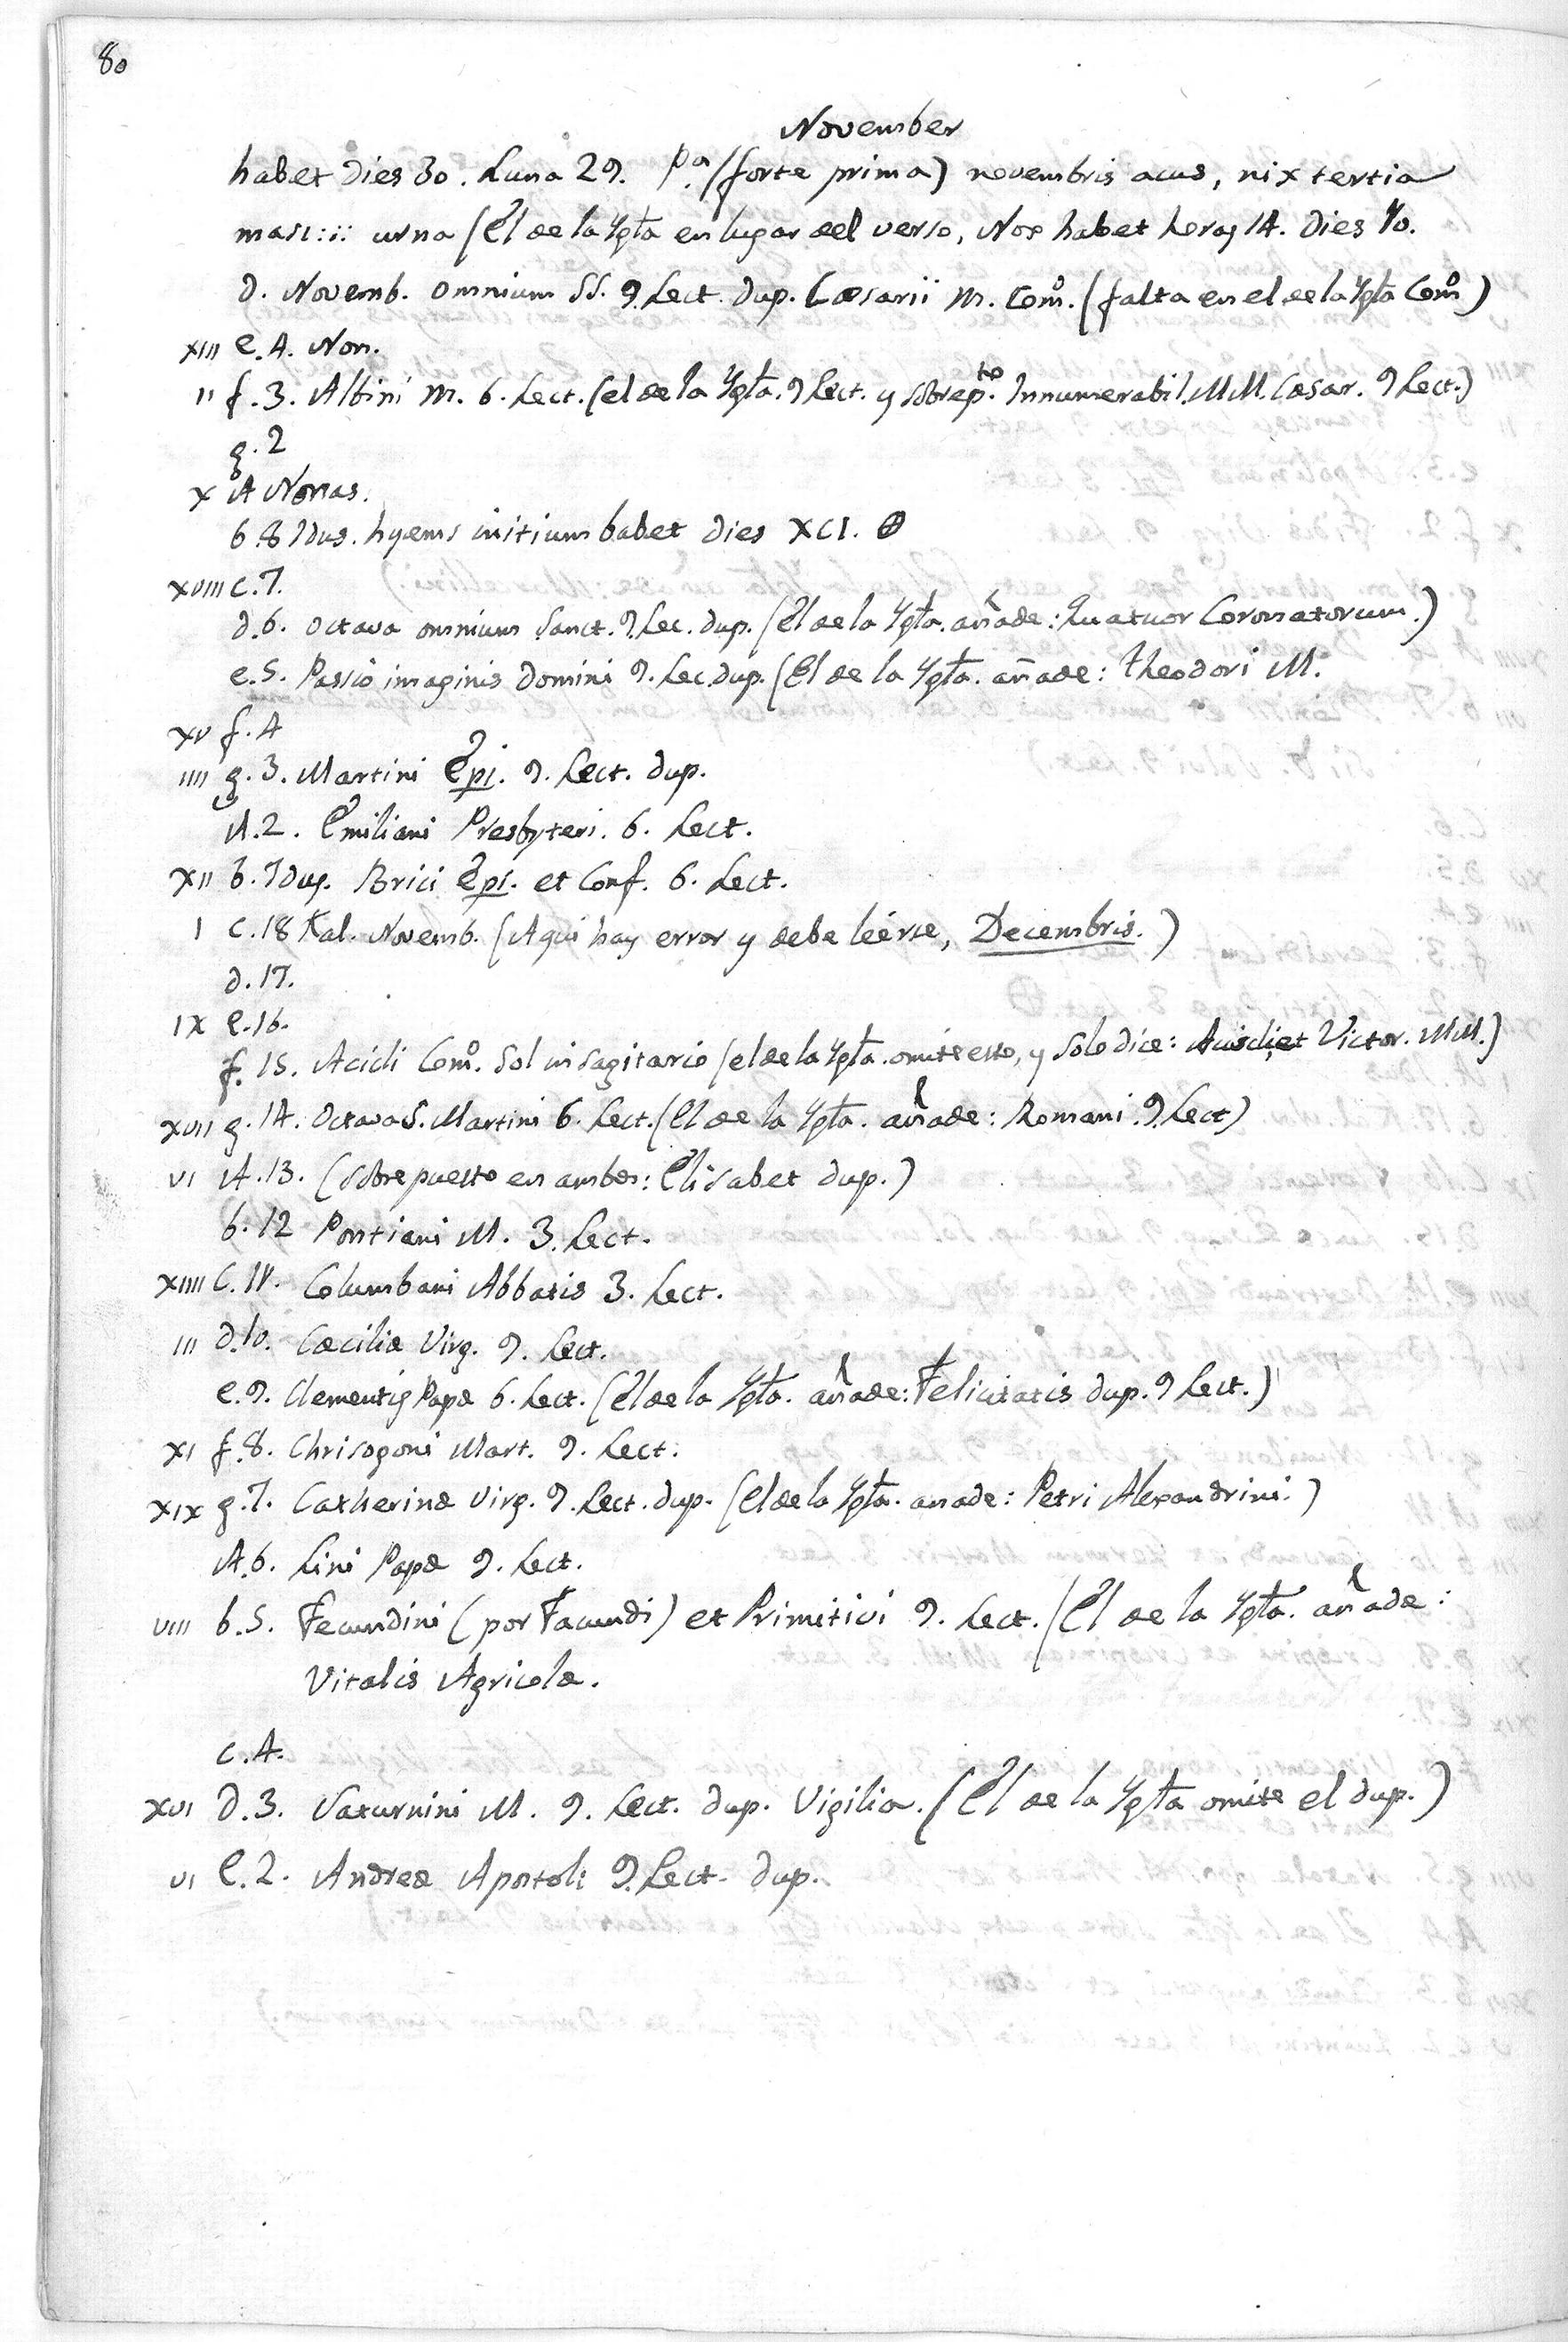 80
November
habet dies 30. Luna 29. P.a (forte prima) novembris acus, nix tertia
mas1:i: urna (El de la Ygta en lugar del verso, Nox habet horas 14. Dies 10.
d. Novemb. omnium SS. 9. Lect. dup. Cæsarii M. Com̊. (falta en el de la Ygta Com̊)
XIII e. 4. Non.
II f. 3. Albini M. 6. Lect. (el de la Ygta. 9 Lect. y sobrep.to Innumerabil. MM. Cæsar. 9 Lect.)
g. 2
X A Nonas.
b. 8 Idus. hyems initium habet dies XCI. ⊕
XVIII c. 7.
d. 6. Octava omnium Sanct. 9. Lec. dup. (El de la Ygta. añade: Quatuor Coronatorum.)
e. 5. Passio imaginis Domini 9. Lec. dup. (El de la Ygta. añade: theodori M.
XV f. 4
IIII g. 3. Martini Epi. 9. Lect. dup.
A. 2. Emiliani Presbyteri. 6. Lect.
XII b. Idus. Brici Epi. et Conf. 6. Lect.
I c. 18 Kal. Novemb. (Aqui hay error y debe leérse, Decembris.)
d. 17.
IX e. 16.
f. 15. Acicli Com̊. Sol in sagitario (el de la Ygta. omite esto, y solo dice: Aciscli et Victor. MM.)
XVII g. 14. Octava S. Martini 6. Lect. (El de la Ygta. añade: Romani. 9. Lect)
VI A. 13. (Sobrepuesto en ambos: Elisabet dup.)
b. 12 Pontiani M. 3. Lect.
XIIII c. 11. Columbani Abbatis 3. Lect.
III d. 10. Cæciliæ Virg. 9. Lect.
e. 9. Clementis Papæ 6. Lect. (El de la Ygta. añade: Felicitatis dup. 9 Lect.)
XI f. 8. Chrisogoni Mart. 9. Lect.
XIX g. 7. Catherinæ Virg. 9. Lect. dup. (El de la Ygta. anade: Petri Alexandrini.)
A. 6. Lini Papæ 9. Lect.
VIII b. 5. Fecundini (por Facundi) et Primitivi 9. Lect. (El de la Ygta. añade:
Vitalis Agricolæ.
c. 4.
XVI d. 3. Saturnini M. 9. Lect. dup. Vigilia. (El de la Ygta omite el dup.)
VI e. 2. Andreæ Apostoli 9. Lect. dup.